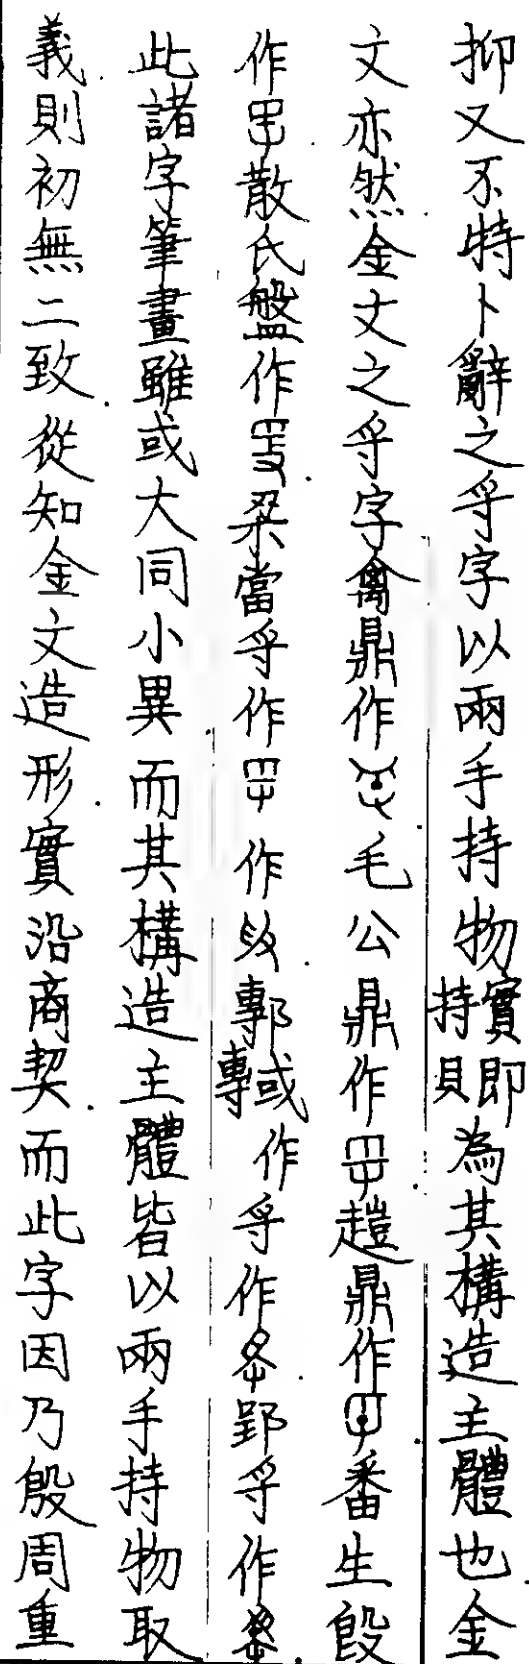 抑又不特卜辭之寽字以兩手持物實即持貝為其構造主體也金
文亦然金文之寽字禽鼎作毛公鼎作趞鼎作番生𣪘
作散氏盤作當寽作作或作寽作郢寽作
此諸字筆畫雖或大同小異而其構造主體皆以兩手持物取
義則初無二致從知金文造形實沿商契而此字因乃殷周重